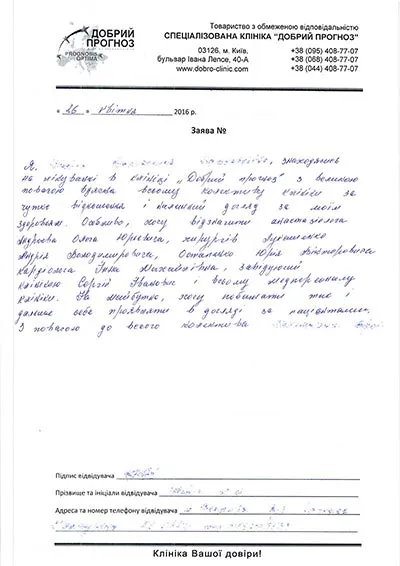 ДОБРИЙ
ПРОГНОЗ
PROGNOSIS
OPTIMA
Товариство з обмеженою відповідальністю
СПЕЦІАЛІЗОВАНА КЛІНІКА "ДОБРИЙ ПРОГНОЗ"
03126, м. Київ,
бульвар Івана Лепсе, 40-А
www.dobro-clinic.com
+38 (095) 408-77-07
+38 (068) 408-77-07
+38 (044) 408-77-07
« 26 » квітня 2016 р.
Заява №
Я, знаходячись
на лікуванні в клініці „Добрий прогноз" з великою
повагою вдячна всьому колективу клініки за
чутке відношення і належний догляд за моїм
здоровям. Особливо, хочу відзначити анастазіолога
Андреєва Олега Юрієвича, хирургів Лукашенко
Андрія Володимировича, Остапенко Юрія Вікторовича
кардіолога Інна Михайлівна, завідуючий
клінікою Сергій Іванович і всьому медперсоналу
клініки. На майбутнє, хочу побажати так і
дальше себе проявляти в догляді за пацієнтами.
З повагою до всього колективу
Підпис відвідувача
Прізвище та ініціали відвідувача
Адреса та номер телефону відвідувача
Клініка Вашої довіри!